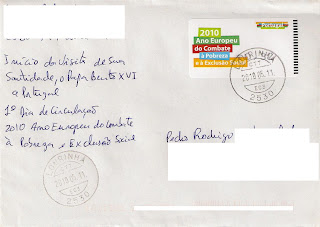 Início da Visita de Sua
Santidade, o Papa Bento XVI
a Portugal
1º Dia de Circulação
2010 Ano Europeu do Combate
à Pobreza e Exclusão Social
LOURINHÃ
2010.05.11
2530
Portugal
2010
Ano Europeu
do Combate
à Pobreza
e à Exclusão Social
LOURINHÃ
2010.05.11
2530
Pedro Rodrigo